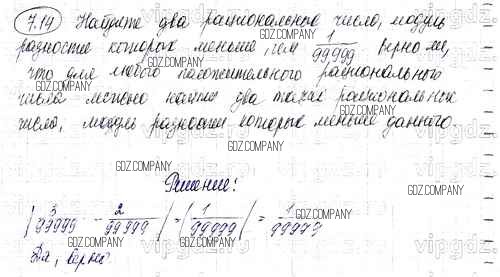 7.14 Найдите два рациональных числа, модуль
разности которых меньше, чем 1/99999 Верно ли,
что для любого положительного рационального
числа можно найти два таких рациональных
числа, модуль разности которых меньше данного.
Решение:
| 3/99999 - 2/99999 | = | 1/99999 | = 1/99999
Да, верно
GDZ.COMPANY
vipgdz.ru